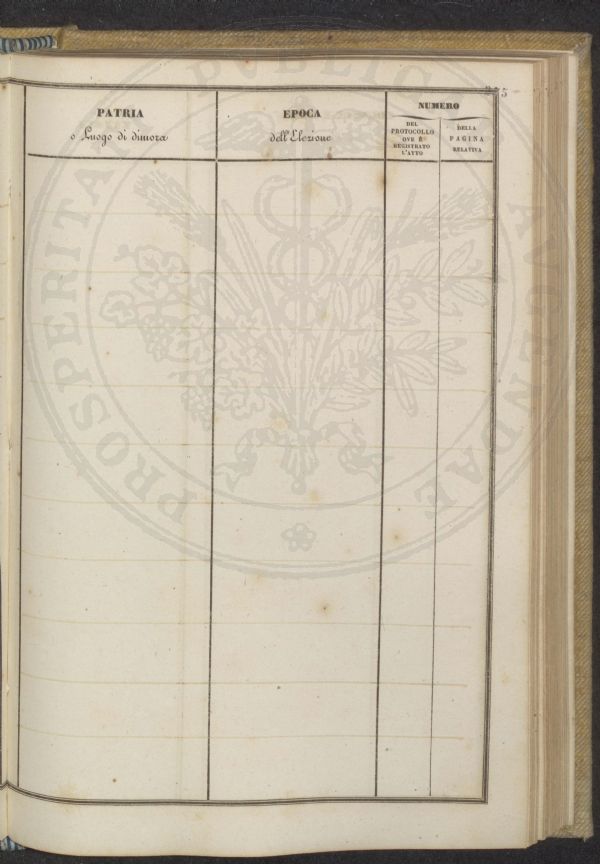 PATRIA
o Luogo di dimora
EPOCA
dell'Elezione
NUMERO
DEL
PROTOCOLLO
OVE È
REGISTRATO
L'ATTO
DELLA
PAGINA
RELATIVA
PROSPERITATI PUBLICAE AUGENDAE